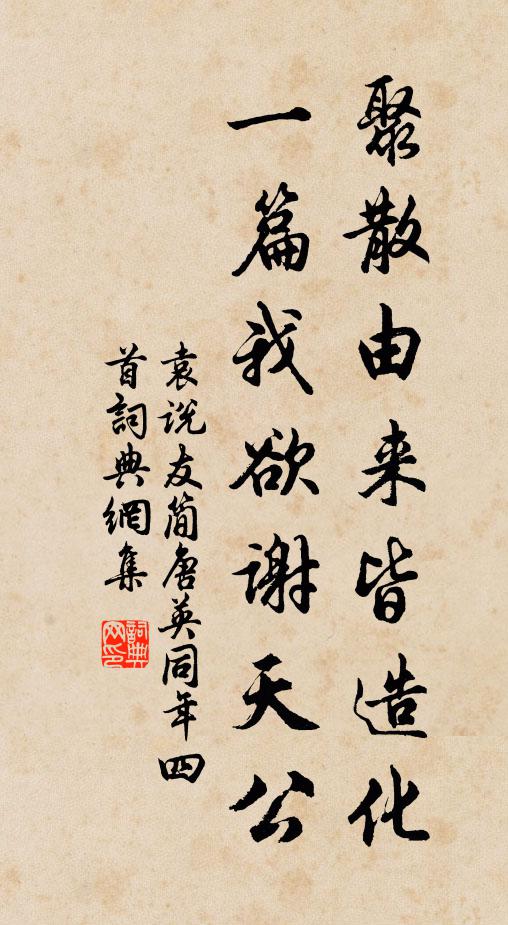 聚散由来皆造化
一篇我欲谢天公
袁说友简唐英同年四
首詞典網集
詞典
网印